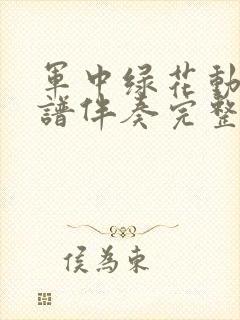 軍中绿花動
譜伴奏完整
侯為東